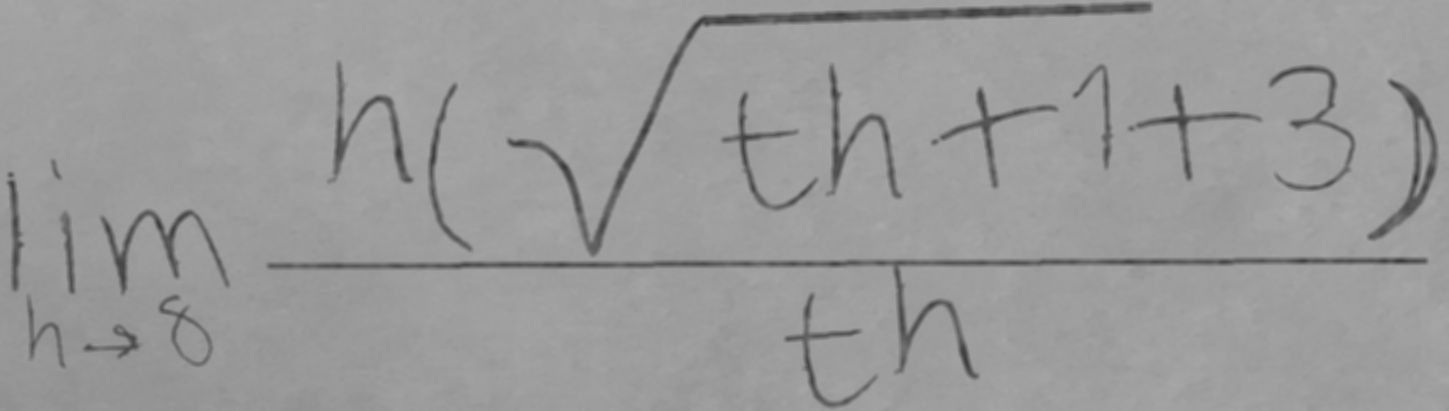 \lim_{h \to 8} \frac{h(\sqrt{th+1}+3)}{th}